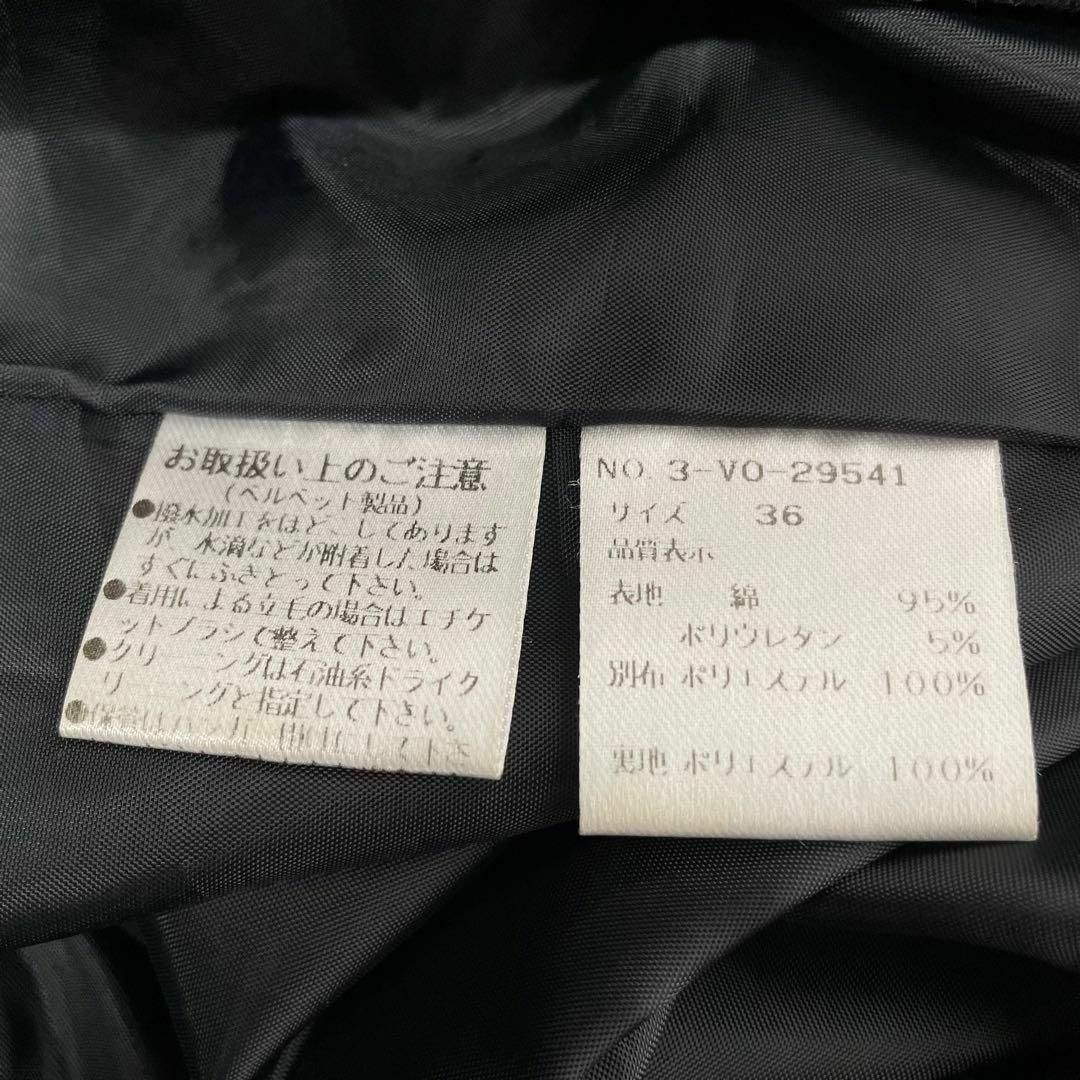 お取扱い上のご注意
(ベルベット製品)
●撥水加工をほどこしてあります
が、水滴などが附着した場合は
すぐにふきとって下さい。
●着用による立毛の場合はエチケ
ットブラシで整えて下さい。
●クリーニングは石油系ドライク
リーニングと指定して下さい。
●保管はハンガー掛けにして下さ
NO. 3-VO-29541
サイズ 36
品質表示
表地 綿 95%
ポリウレタン 5%
別布 ポリエステル 100%
裏地 ポリエステル 100%